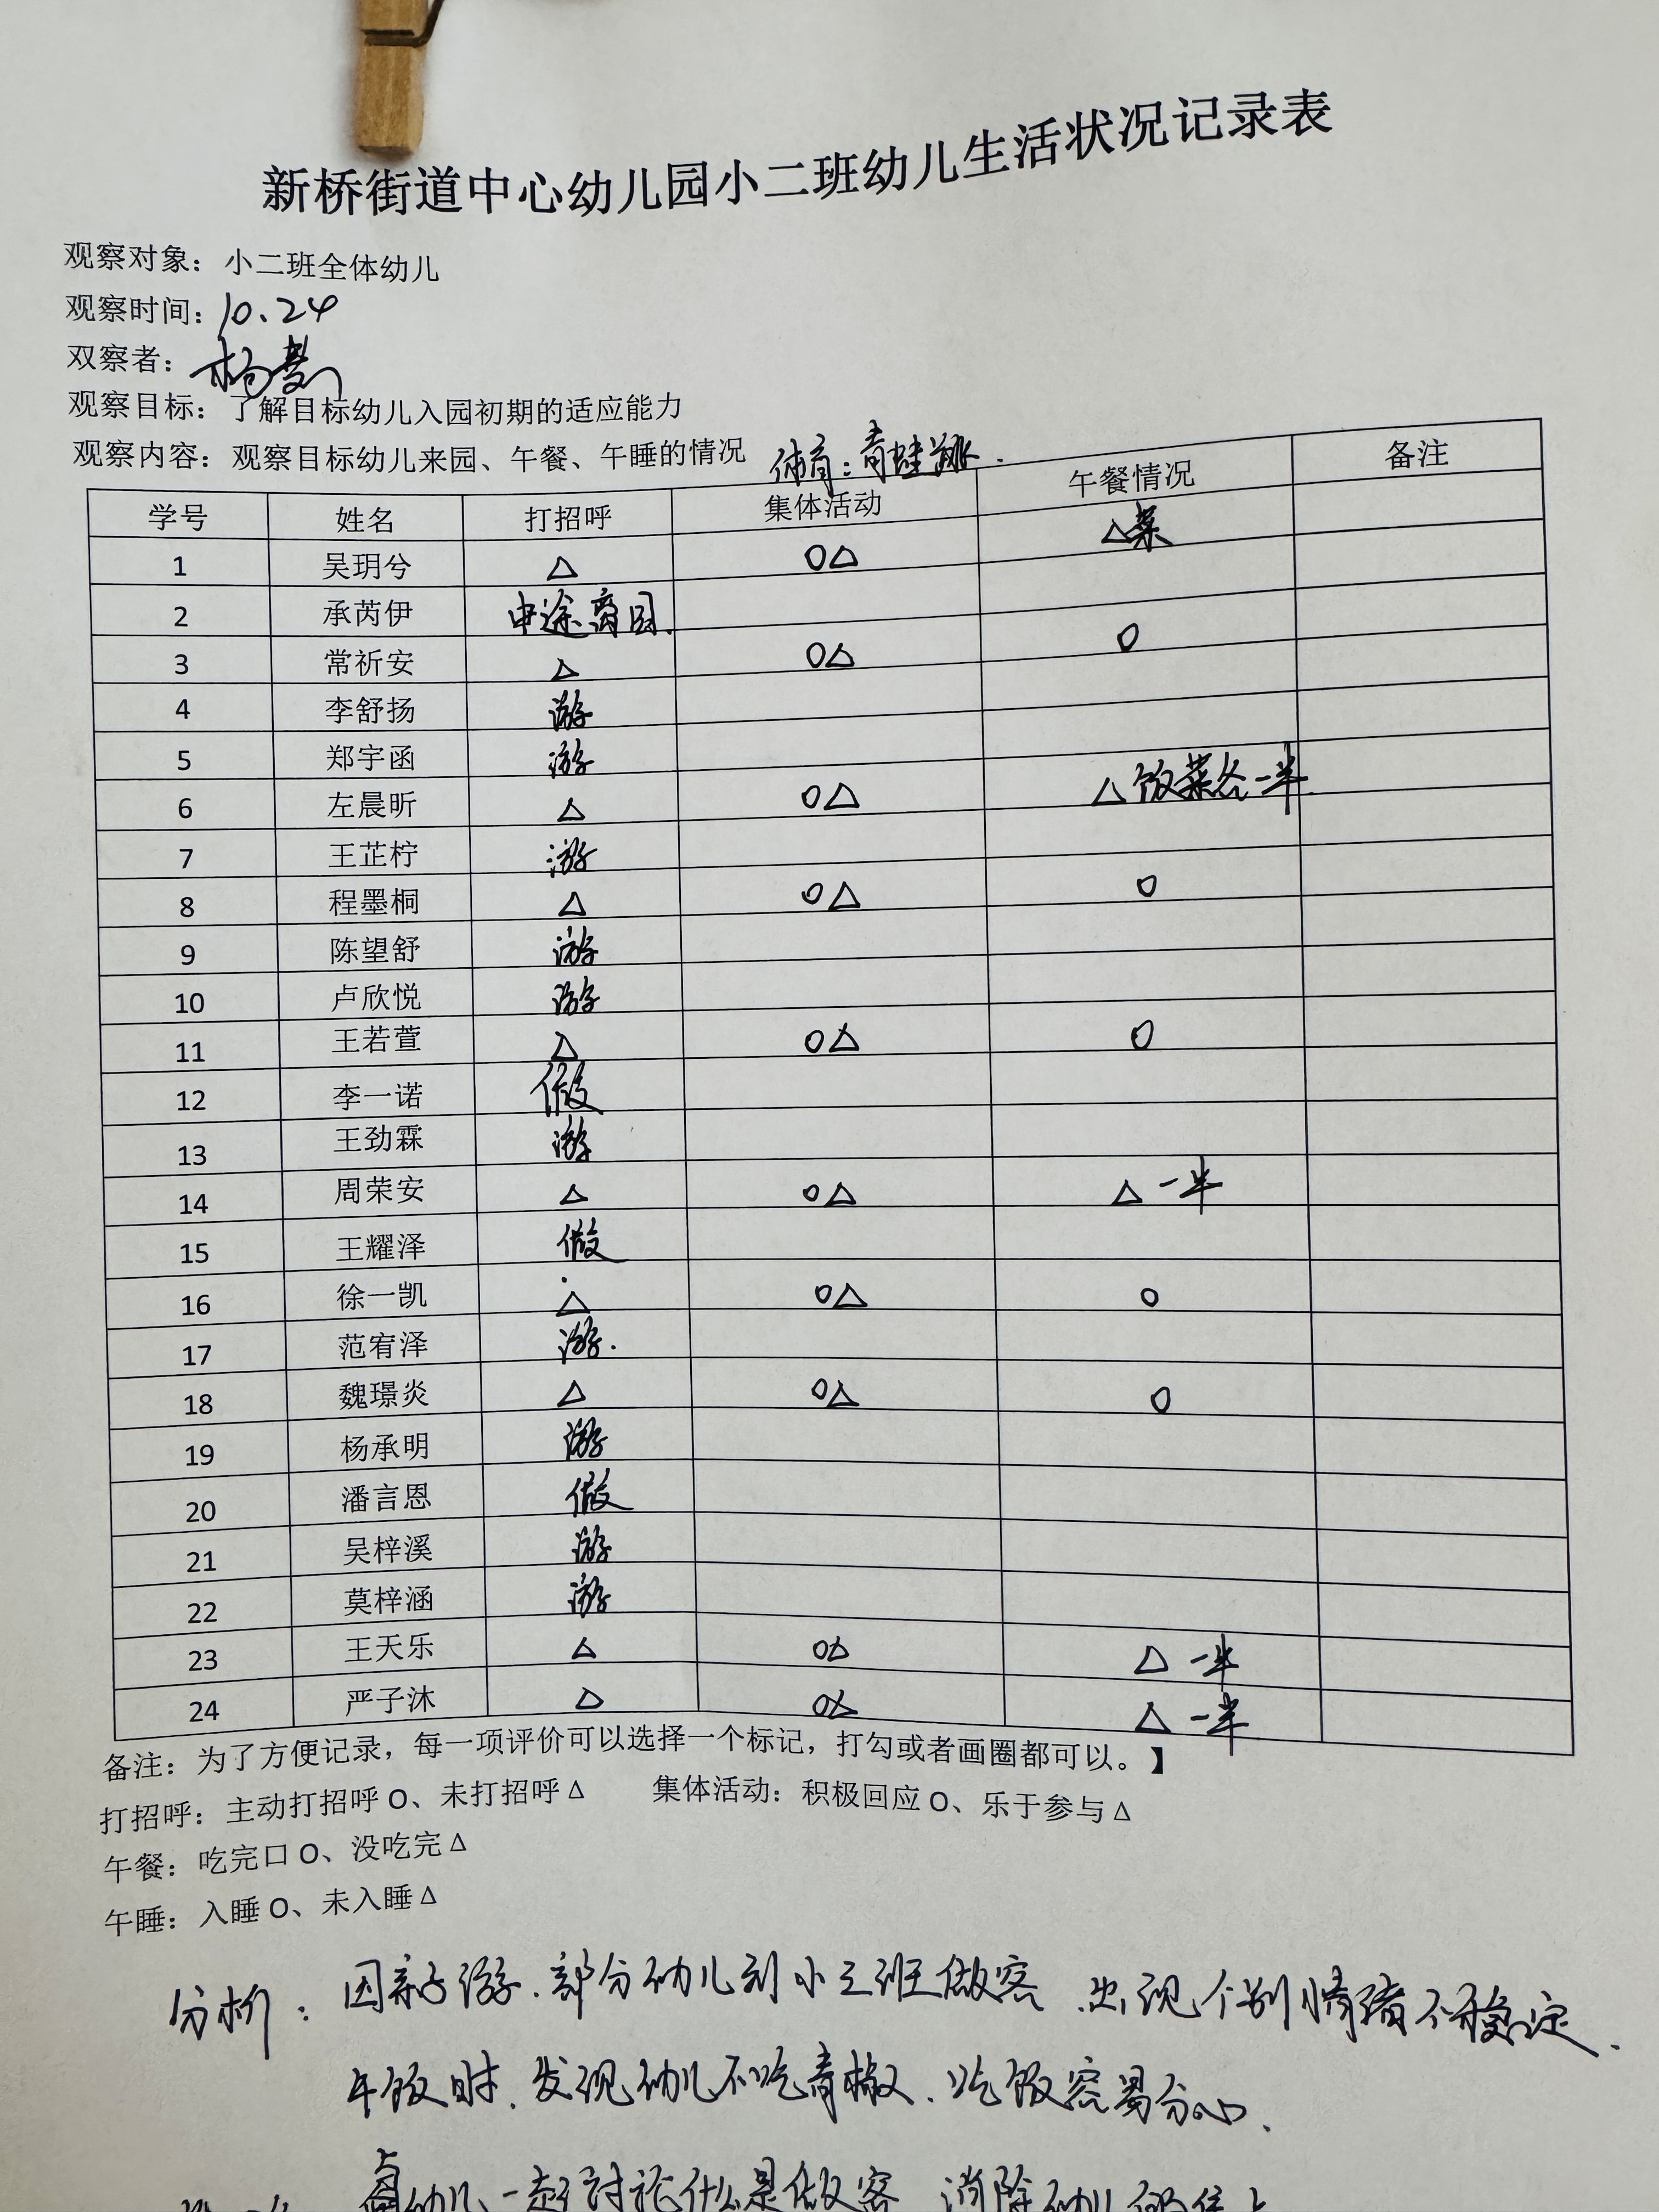 新桥街道中心幼儿园小二班幼儿生活状况记录表
观察对象：小二班全体幼儿
观察时间：10.24
双察者：杨
观察目标：了解目标幼儿入园初期的适应能力
观察内容：观察目标幼儿来园、午餐、午睡的情况 体育：青蛙跳.
学号 姓名 打招呼 集体活动 午餐情况 备注
1 吴玥兮 △ O△ △菜
2 承芮伊 中途离园.
3 常祈安 △ O△ O
4 李舒扬 游
5 郑宇函 游
6 左晨昕 △ O△ △饭菜各一半.
7 王芷柠 游
8 程墨桐 △ O△ O
9 陈望舒 游
10 卢欣悦 游
11 王若萱 △ O△ O
12 李一诺 假
13 王劲霖 游
14 周荣安 △ O△ △一半
15 王耀泽 假
16 徐一凯 △ O△ O
17 范宥泽 游.
18 魏璟炎 △ O△ O
19 杨承明 游
20 潘言恩 假
21 吴梓溪 游
22 莫梓涵 游
23 王天乐 △ O△ △一半
24 严子沐 △ O△ △一半
备注：为了方便记录，每一项评价可以选择一个标记，打勾或者画圈都可以。】
打招呼：主动打招呼 O、未打招呼 Δ 集体活动：积极回应 O、乐于参与 Δ
午餐：吃完口 O、没吃完 Δ
午睡：入睡 O、未入睡 Δ
分析：因亲子游.部分幼儿到小三班做客.出现个别情绪不稳定.
午饭时.发现幼儿不吃青椒.吃饭容易分心.
幼儿一起讨论什么是做客 消除幼儿